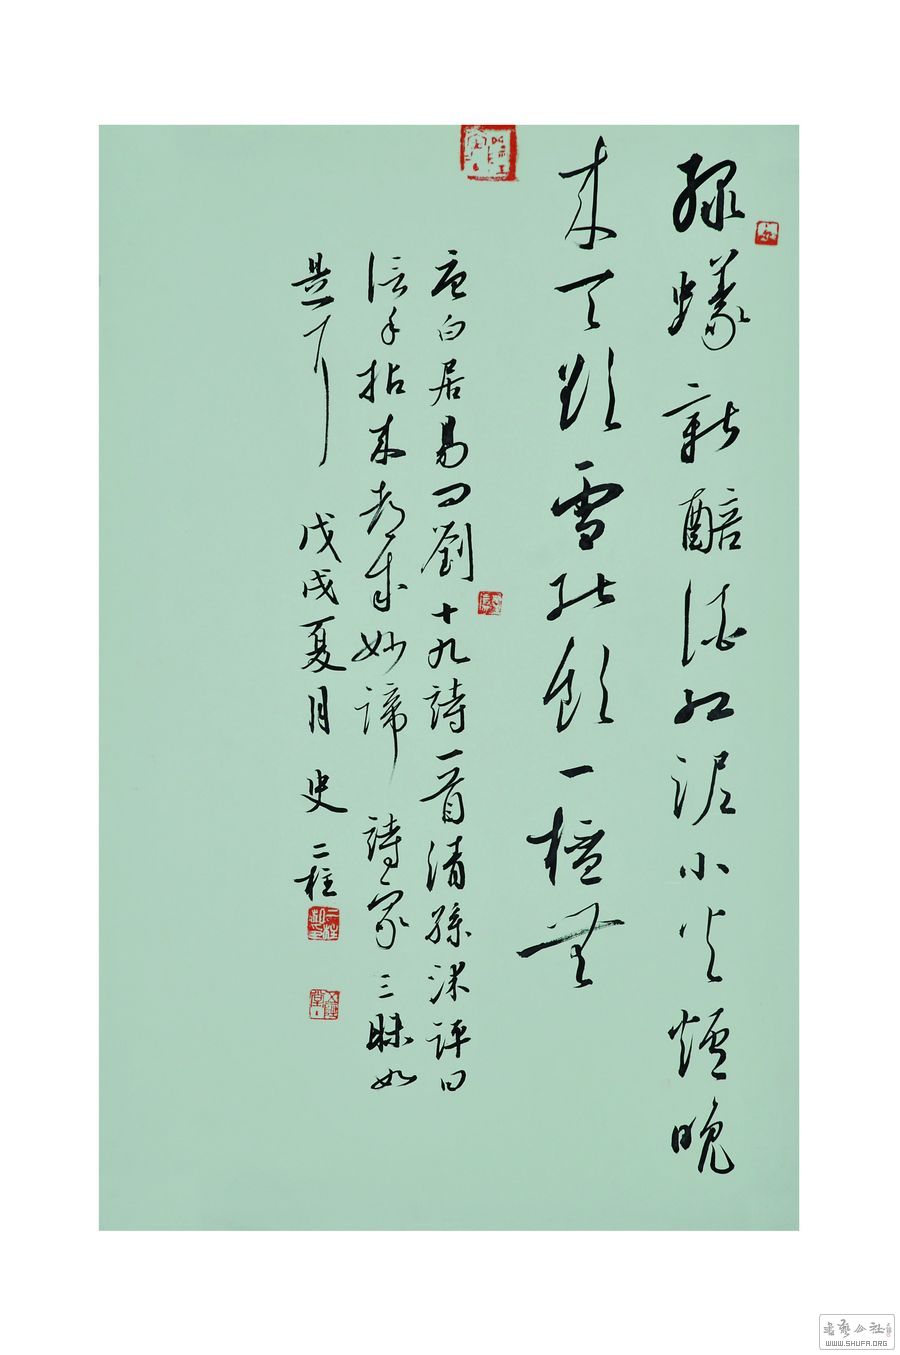 緑蟻新醅酒紅泥小火爐晚
来天欲雪能飲一無
唐白居易问劉十九詩一首清孫洙評曰
信手拈来都成妙諦詩家三昧如
是 戊戌夏月史二柱
書藝公社
WWW.SHUFA.ORG